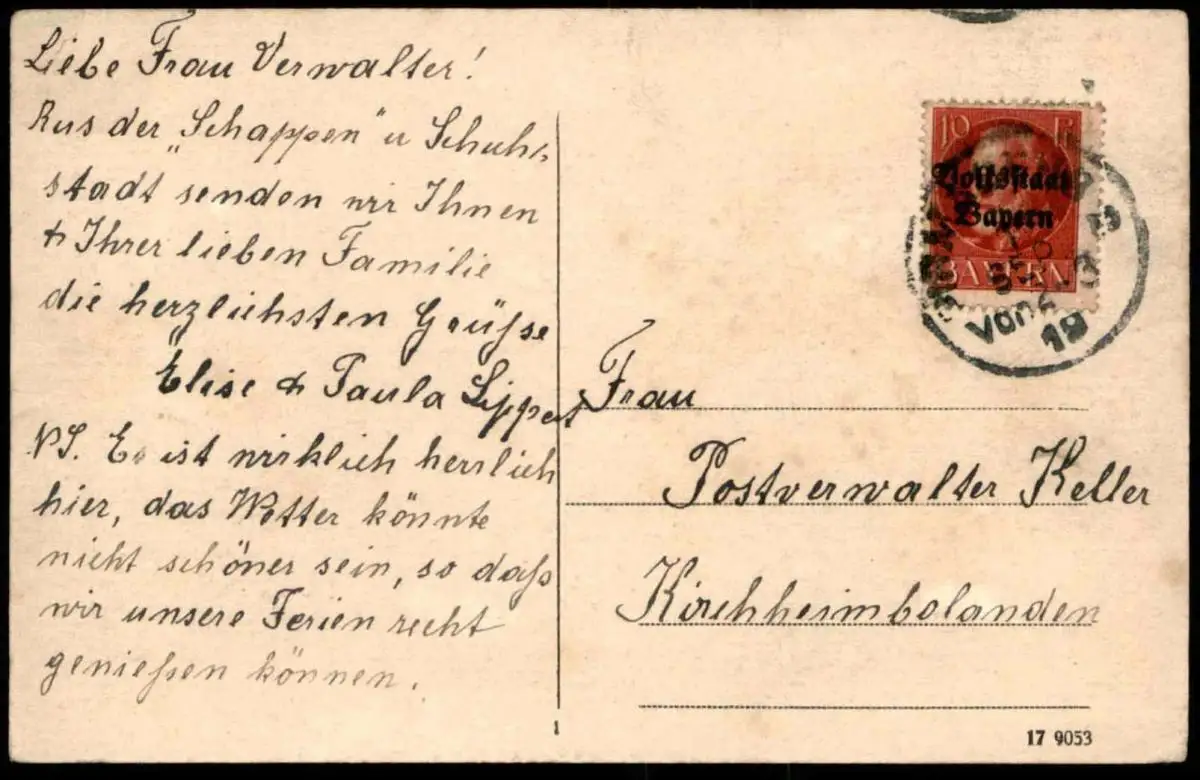 Liebe Frau Verwalter!
Aus der „Schappen" u Schuh-
stadt senden wir Ihnen
& Ihrer lieben Familie
die herzlichsten Grüsse
Elise & Paula Lippert
PS. Es ist wirklich herrlich
hier, das Wetter könnte
nicht schöner sein, so dass
wir unsere Ferien recht
geniessen können.
10 Pf
Volksstaat
Bayern
BAYERN
Vorm.
19
Frau
Postverwalter Keller
Kirchheimbolanden
1
17 9053